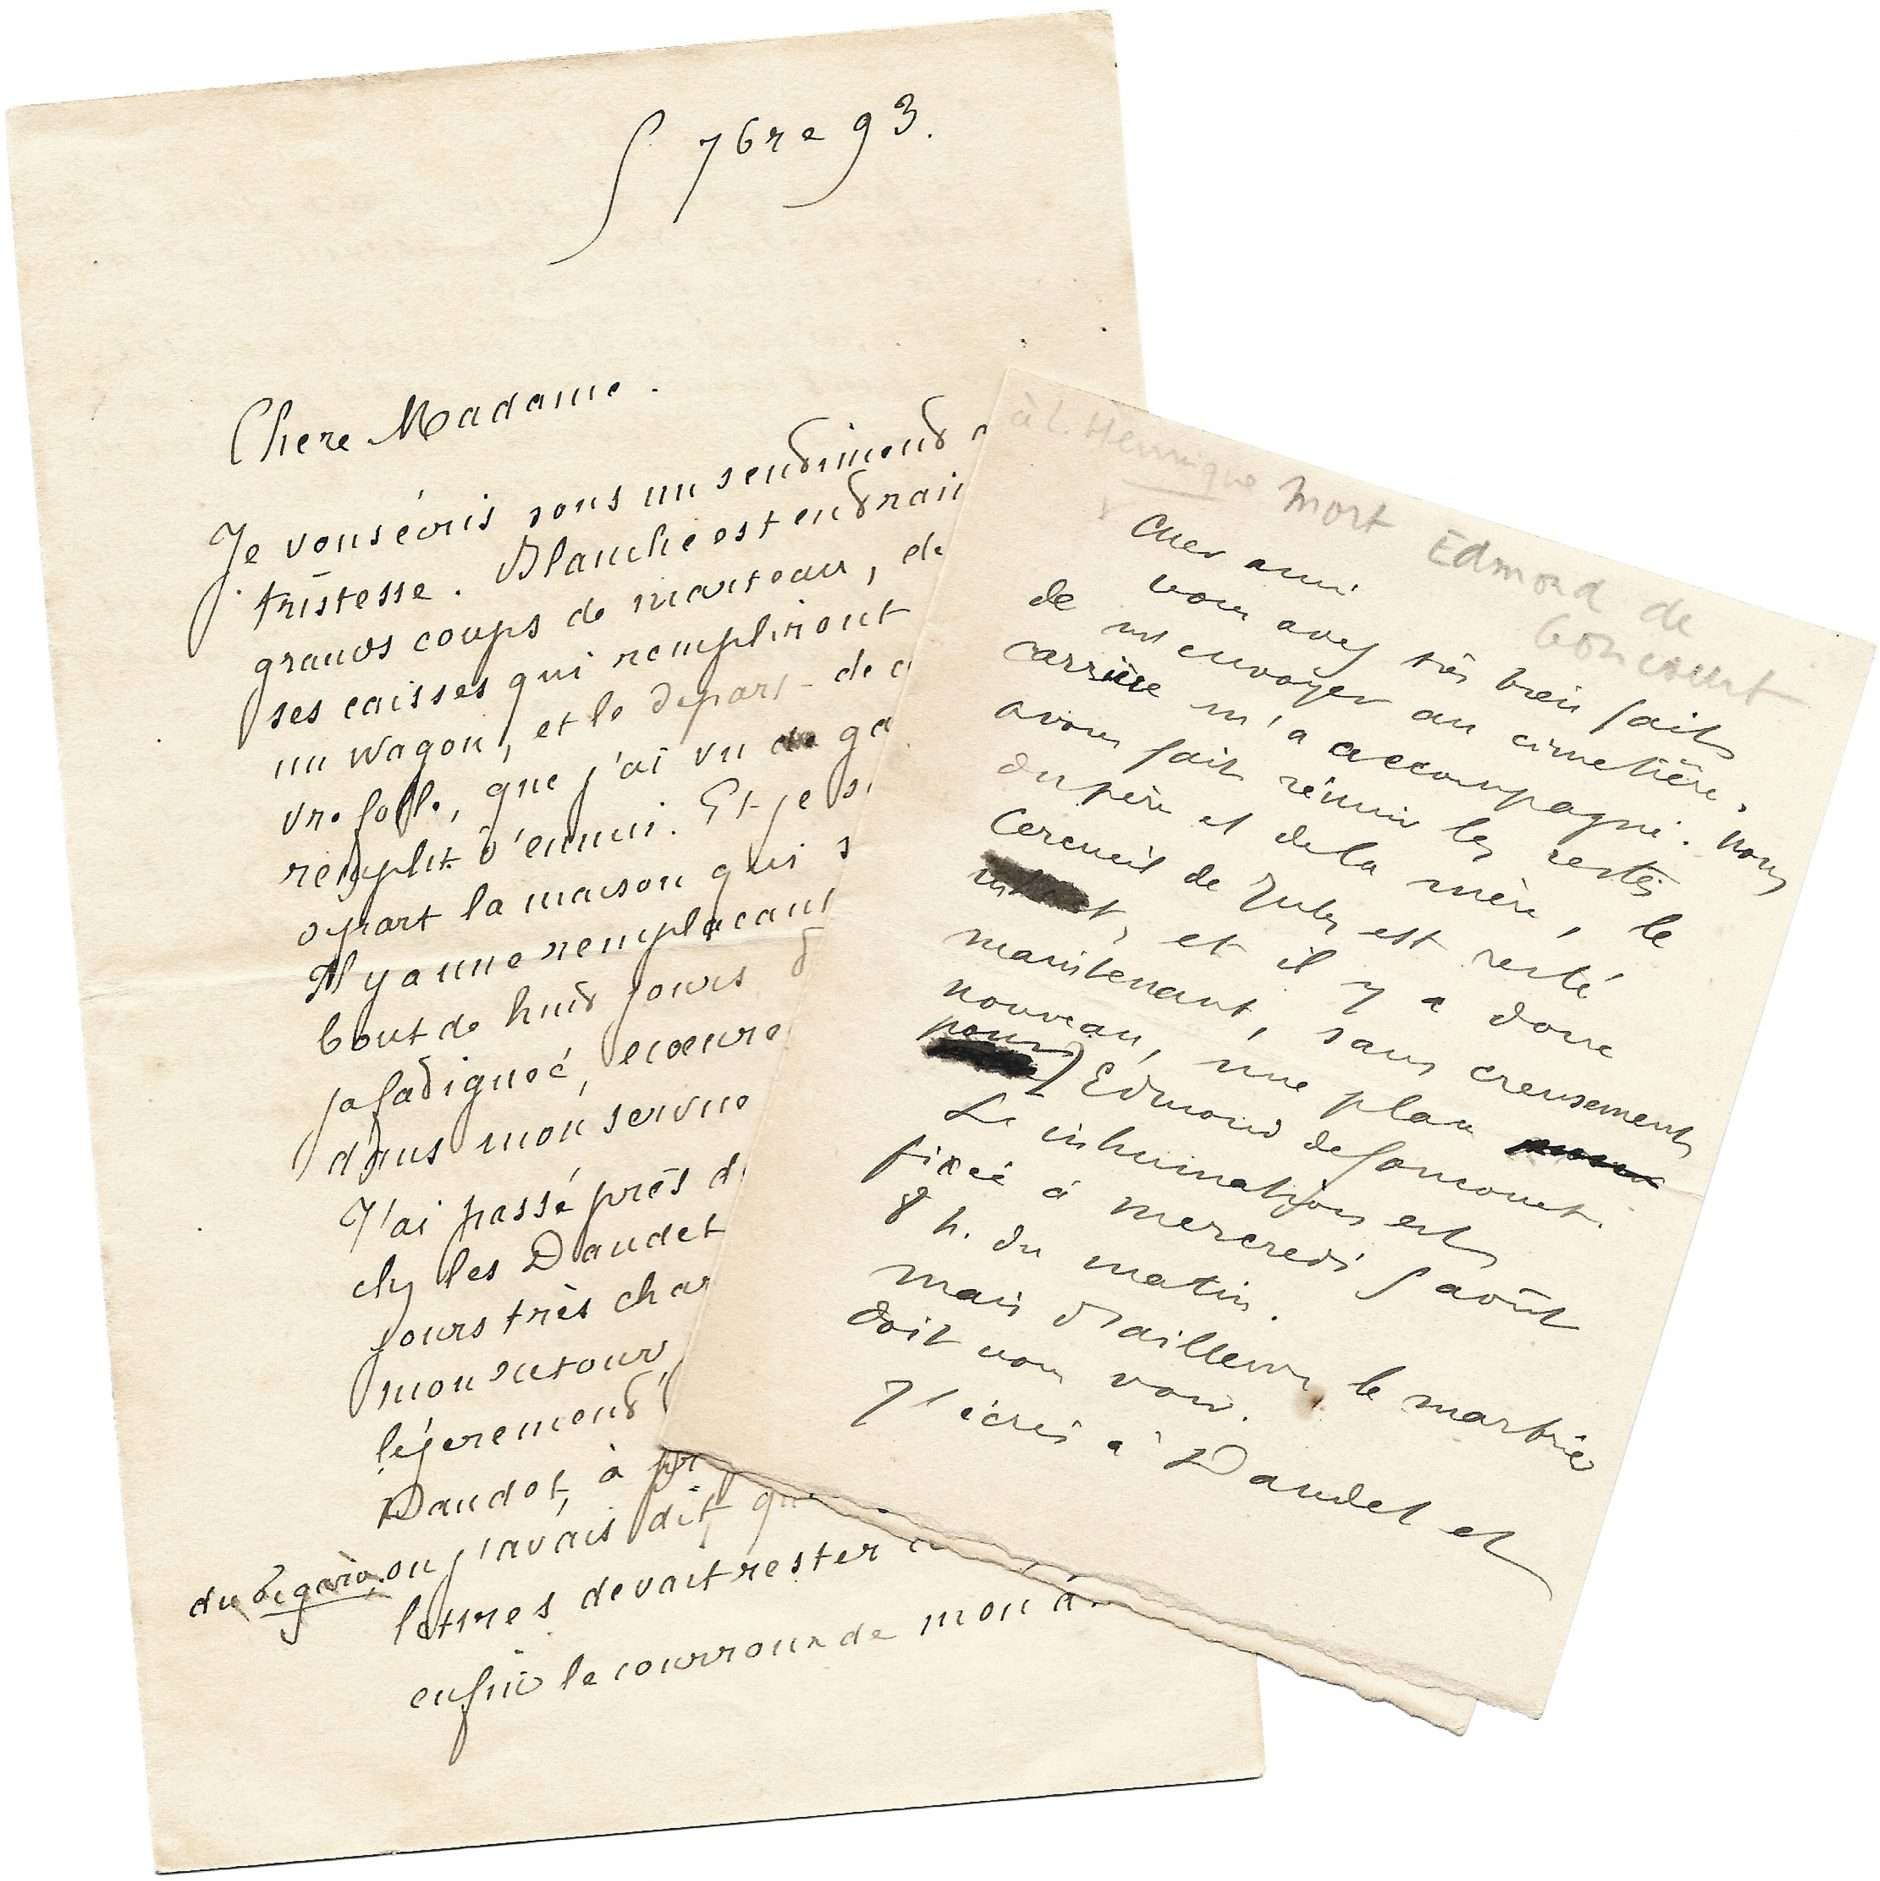 5 7bre 93.
Chere Madame.
Je vous écris sous un sendimend
tristesse. Blanche est en drain
grands coups de marteau, de
ses caisses qui rempliront
un wagon, et le depart de
vre folle, que j'ai vu de ga
remplit d'ennui. Et je s
depart la maison qui s
Il y a une remplacan
bout de huid jours
fadiguée, ecœuré
dans mon service
J'ai passé près d
chz les Daudet
jours très char
mon retour,
légeremend
Daudet, à pr
du Figaro, où j'avais dit, que
lettres devait rester
enfin le courroux de mon
à L. Hennique Mort Edmond de
Goncourt
Cher ami
vous avez très bien fait
de m'envoyer au cimetière.
Carrière m'a accompagné. Nous
avons fait réunir les restes
du père et de la mère, le
cercueil de Jules est resté
et il y a donc
maintenant, sans creusement
nouveau, une place pour
pour Edmond de Goncourt.
L'inhumation est
fixée à mercredi 5 août
8 h. du matin.
Mais d'ailleurs le marbrier
doit vous voir.
J'écris à Daudet et